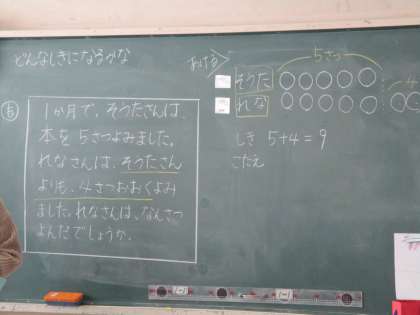 どんなしきになるかな
も
1か月で、そうたさんは、
本を 5さつよみました。
れなさんは、そうたさん
よりも、4さつおおくよみ
ました。れなさんは、なんさつ
よんだでしょうか。
5さつ
そうた
れな
しき 5+4=9
こたえ